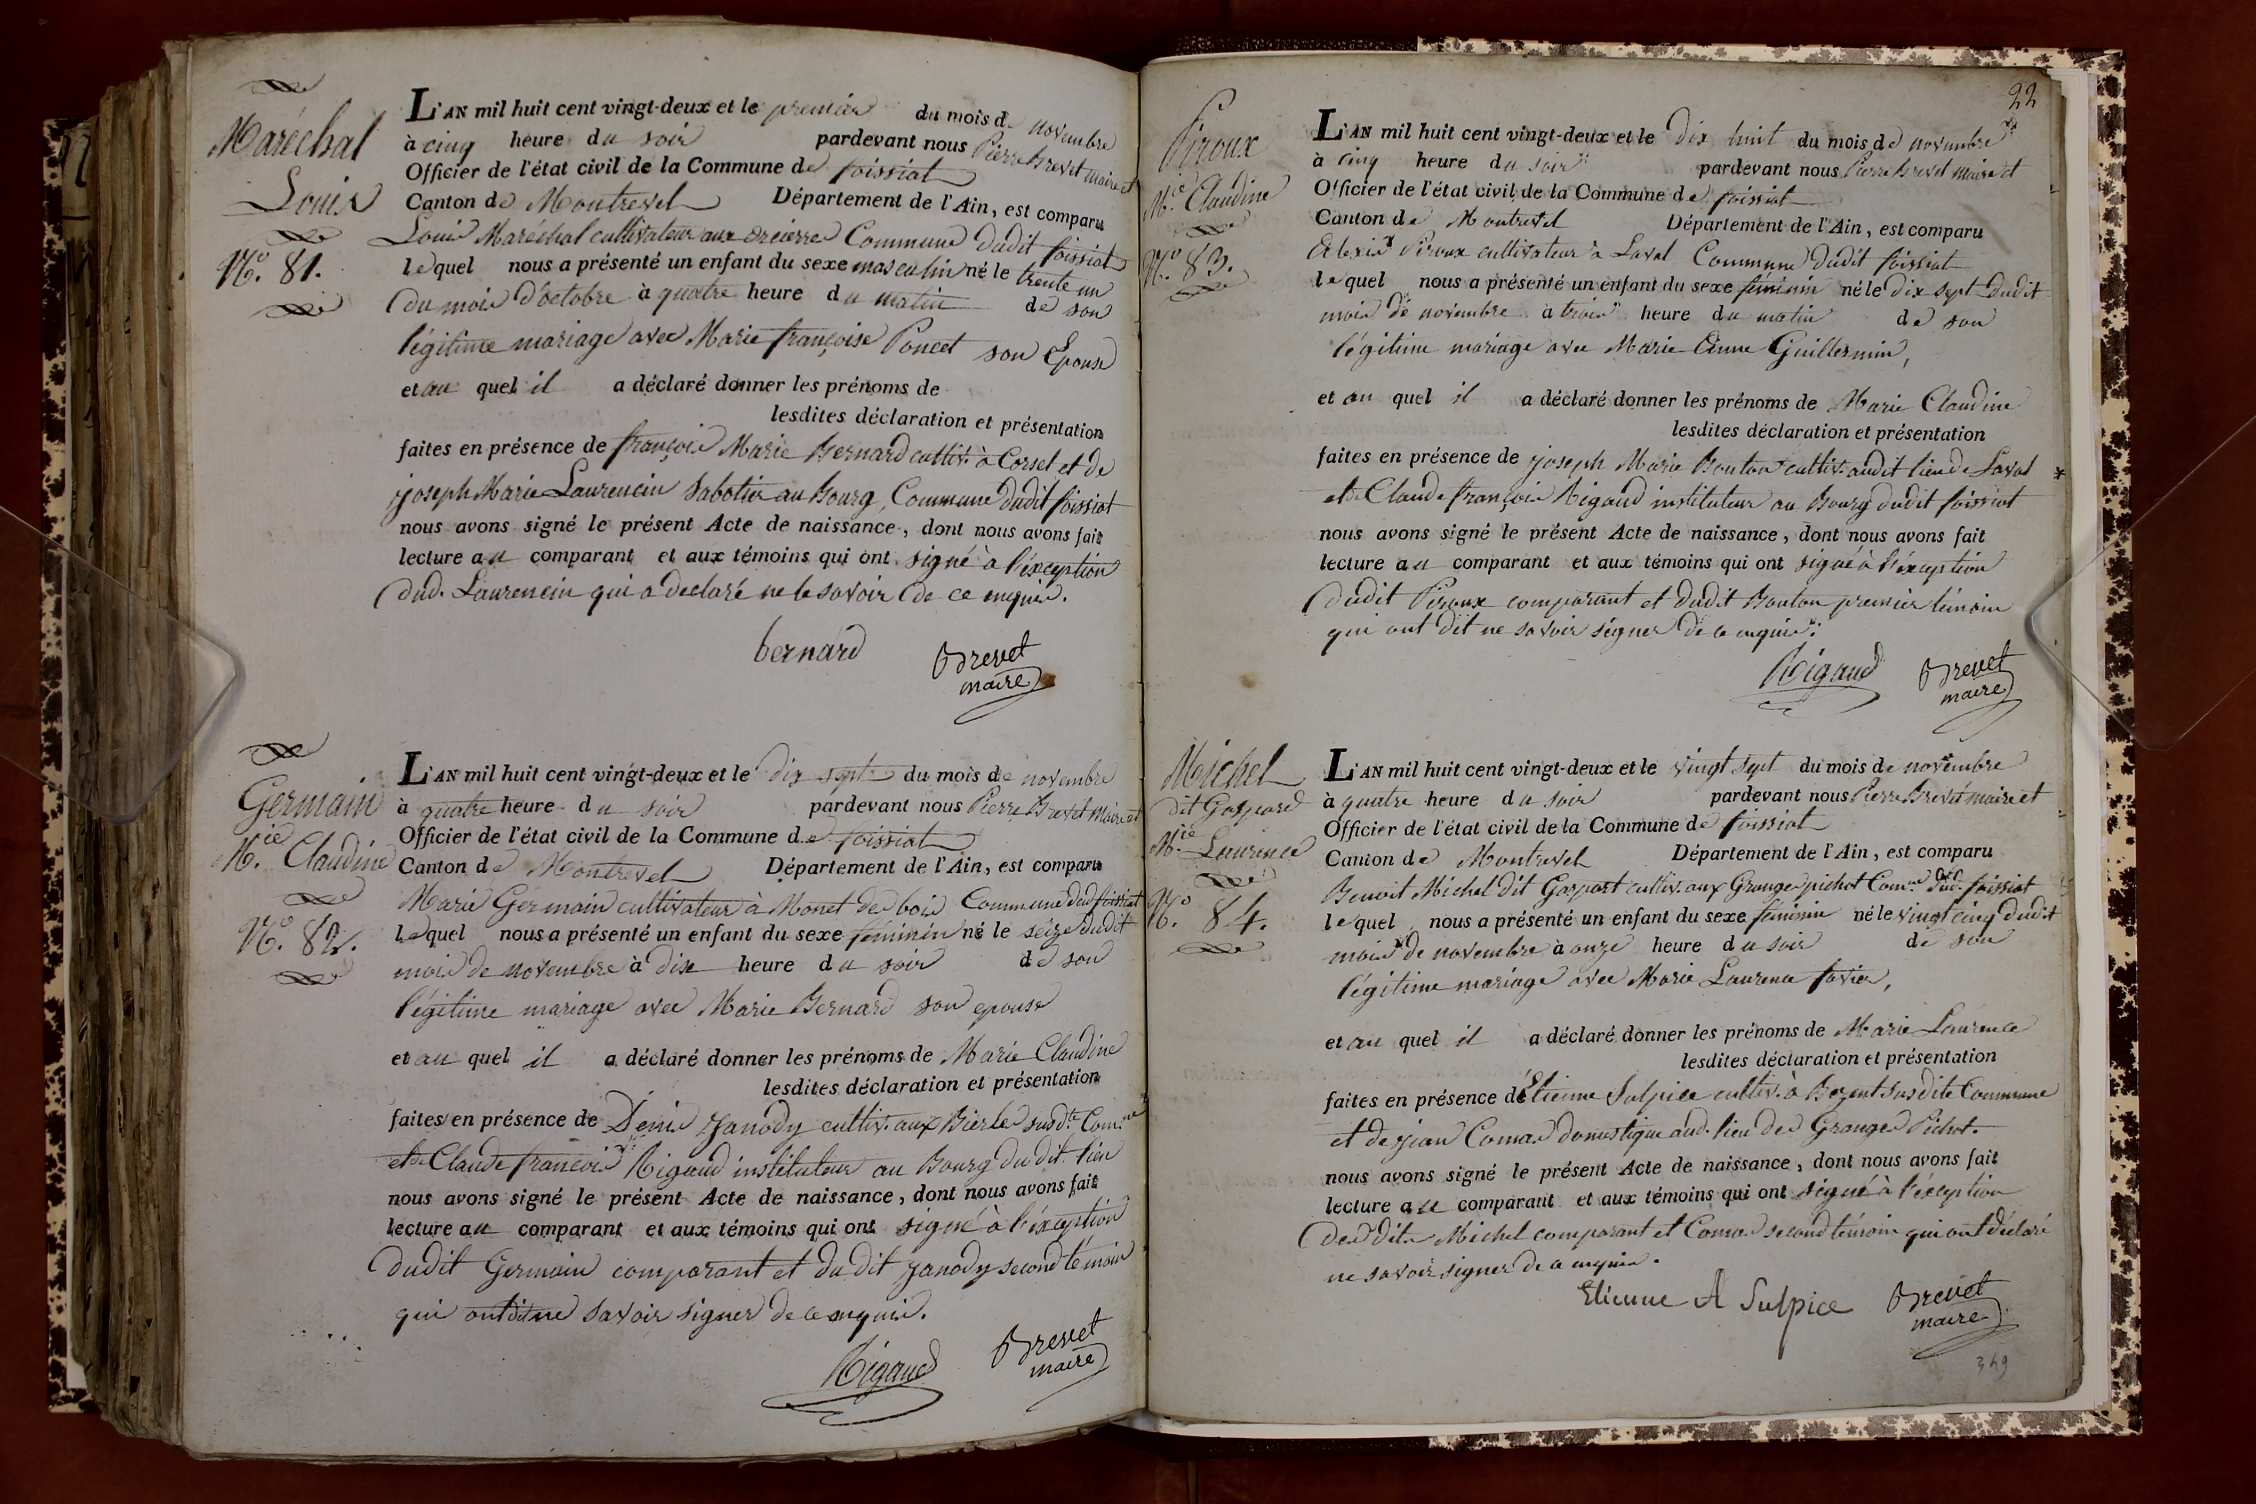 Maréchal
Louis
N.o 81.
L'AN mil huit cent vingt-deux et le premier du mois de novembre
à cinq heure du soir pardevant nous Pierre Brevet maire et
Officier de l'état civil de la Commune de foissiat
Canton de Montrevel Département de l'Ain, est comparu
Louis Maréchal cultivateur aux Commune dudit foissiat
lequel nous a présenté un enfant du sexe masculin né le trente un
du mois d'octobre à quatre heure du matin de son
légitime mariage avec Marie françoise Poncet son Epouse
et au quel il a déclaré donner les prénoms de
lesdites déclaration et présentation
faites en présence de françois Marie Bernard cultiv. à Corsel et de
joseph Marie Laurencin Sabotier au Bourg, Commune dudit foissiat
nous avons signé le présent Acte de naissance, dont nous avons fait
lecture au comparant et aux témoins qui ont signé à l'éxception
dud. Laurencin qui a declaré ne le savoir de ce enquis.
bernard Brevet
maire
Germain
M.ie Claudine
N.o 82.
L'AN mil huit cent vingt-deux et le dix sept du mois de novembre
à quatre heure du soir pardevant nous Pierre Brevet Maire et
Officier de l'état civil de la Commune de foissiat
Canton de Montrevel Département de l'Ain, est comparu
Marie Germain cultivateur à Monet de bois Commune dud foissiat
Lequel nous a présenté un enfant du sexe féminin né le séize dudit
mois de novembre à dix heure du soir de son
légitime mariage avec Marie Bernard son epouse
et au quel il a déclaré donner les prénoms de Marie Claudine
lesdites déclaration et présentation
faites en présence de Dénis Janody cultiv. aux Bierles susd.te Com.ne
et de Claude françois Rigaud instituteur au Bourg du dit lieu
nous avons signé le présent Acte de naissance, dont nous avons fait
lecture au comparant et aux témoins qui ont signé à l'éxception
dudit Germain comparant et du dit Janody second témoin
qui ont dit ne savoir signer de ce enquis.
Rigaud Brevet
maire
22
Piroux
M.ie Claudine
N.o 83.
L'AN mil huit cent vingt-deux et le dix huit du mois de novembre
à cinq heure du soir pardevant nous Pierre Brevet Maire et
Officier de l'état civil de la Commune de foissiat
Canton de Montrevel Département de l'Ain, est comparu
Alexis Piroux cultivateur à Laval Commune dudit foissiat
lequel nous a présenté un enfant du sexe féminin né le dix sept dudit
mois de novembre à trois heure du matin de son
légitime mariage avec Marie Anne Guillermin,
et au quel il a déclaré donner les prénoms de Marie Claudine
lesdites déclaration et présentation
faites en présence de joseph Marie Bouton cultiv. audit lieu de Laval
et de Claude françois Rigaud instituteur au Bourg dudit foissiat
nous avons signé le présent Acte de naissance, dont nous avons fait
lecture au comparant et aux témoins qui ont signé à l'éxception
dudit Piroux comparant et dudit Bouton premier témoin
qui ont dit ne savoir signer de ce enquis.
Rigaud Brevet
maire
Michel
dit Gaspard
M.ie Laurence
N.o 84.
L'AN mil huit cent vingt-deux et le vingt sept du mois de novembre
à quatre heure du soir pardevant nous Pierre Brevet maire et
Officier de l'état civil de la Commune de foissiat
Canton de Montrevel Département de l'Ain, est comparu
Benoit Michel dit Gaspart cultiv. aux Granges pichot Com.ne dud. foissiat
lequel nous a présenté un enfant du sexe féminin né le vingt cinq dudit
mois de novembre à onze heure du soir de son
légitime mariage avec Marie Laurence favier,
et au quel il a déclaré donner les prénoms de Marie Laurence
lesdites déclaration et présentation
faites en présence de Etienne Sulpice cultiv. à Bezent susdite Commune
et de jean Comas domestique aud. lieu des Granges Pichot.
nous avons signé le présent Acte de naissance, dont nous avons fait
lecture au comparant et aux témoins qui ont signé à l'éxception
des dits Michel comparant et Comas second témoin qui ont déclaré
ne savoir signer de ce enquis.
Etienne A Sulpice Brevet
maire
349